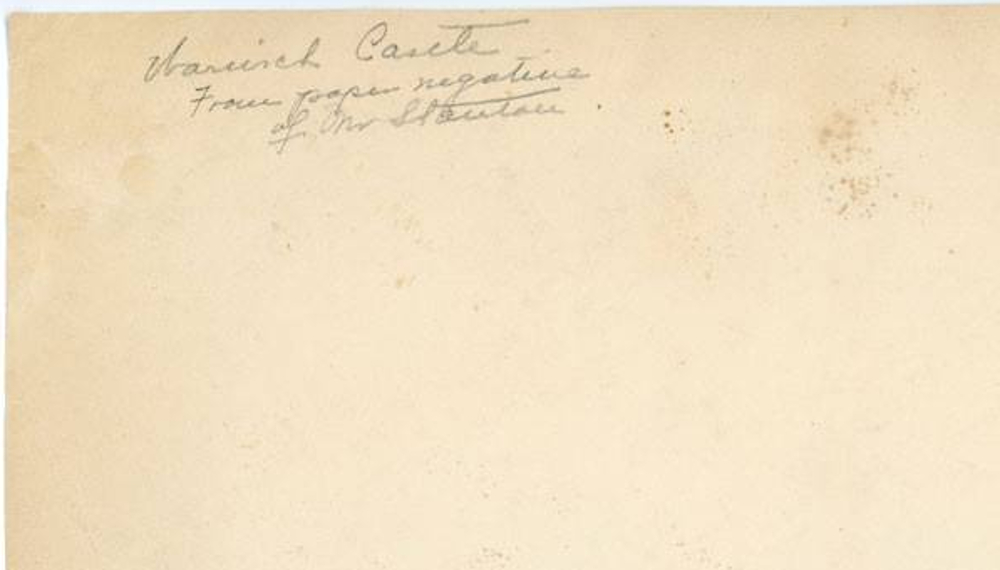 Warwick Castle
From paper negative
of Mr Stanton